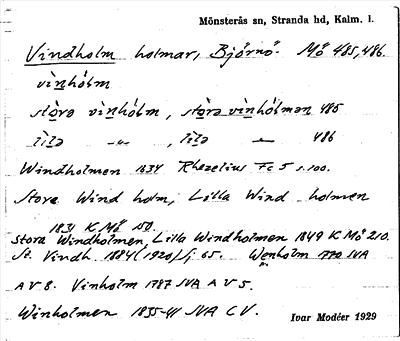 Mönsterås sn, Stranda hd, Kalm. l.
Vindholm holmar, Björnö. Mö 485,486.
vìnhólm
stòra vìnhólm, stòra vìnhólmen 485
lìla —„—, lìla — 486
Windholmen 1634 Rhezelius Fc 5 s. 100.
Stora Wind holm, Lilla Wind holmen
1831 K Mö 150.
Stora Windholmen, Lilla Windholmen 1849 K Mö 210.
St. Vindh. 1884(1920) Sj 65. Wenholm 1770 JVA
A V 8. Vinholm 1787 JVA A V 5.
Winholmen 1835-41 JVA C V.
Ivar Modéer 1929